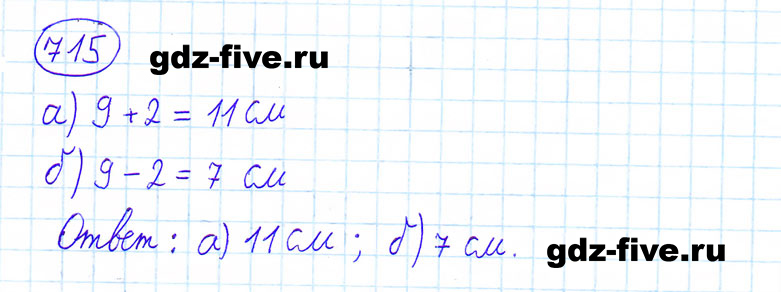 715 gdz-five.ru
а) 9 + 2 = 11 см
б) 9 - 2 = 7 см
Ответ: а) 11 см; б) 7 см. gdz-five.ru